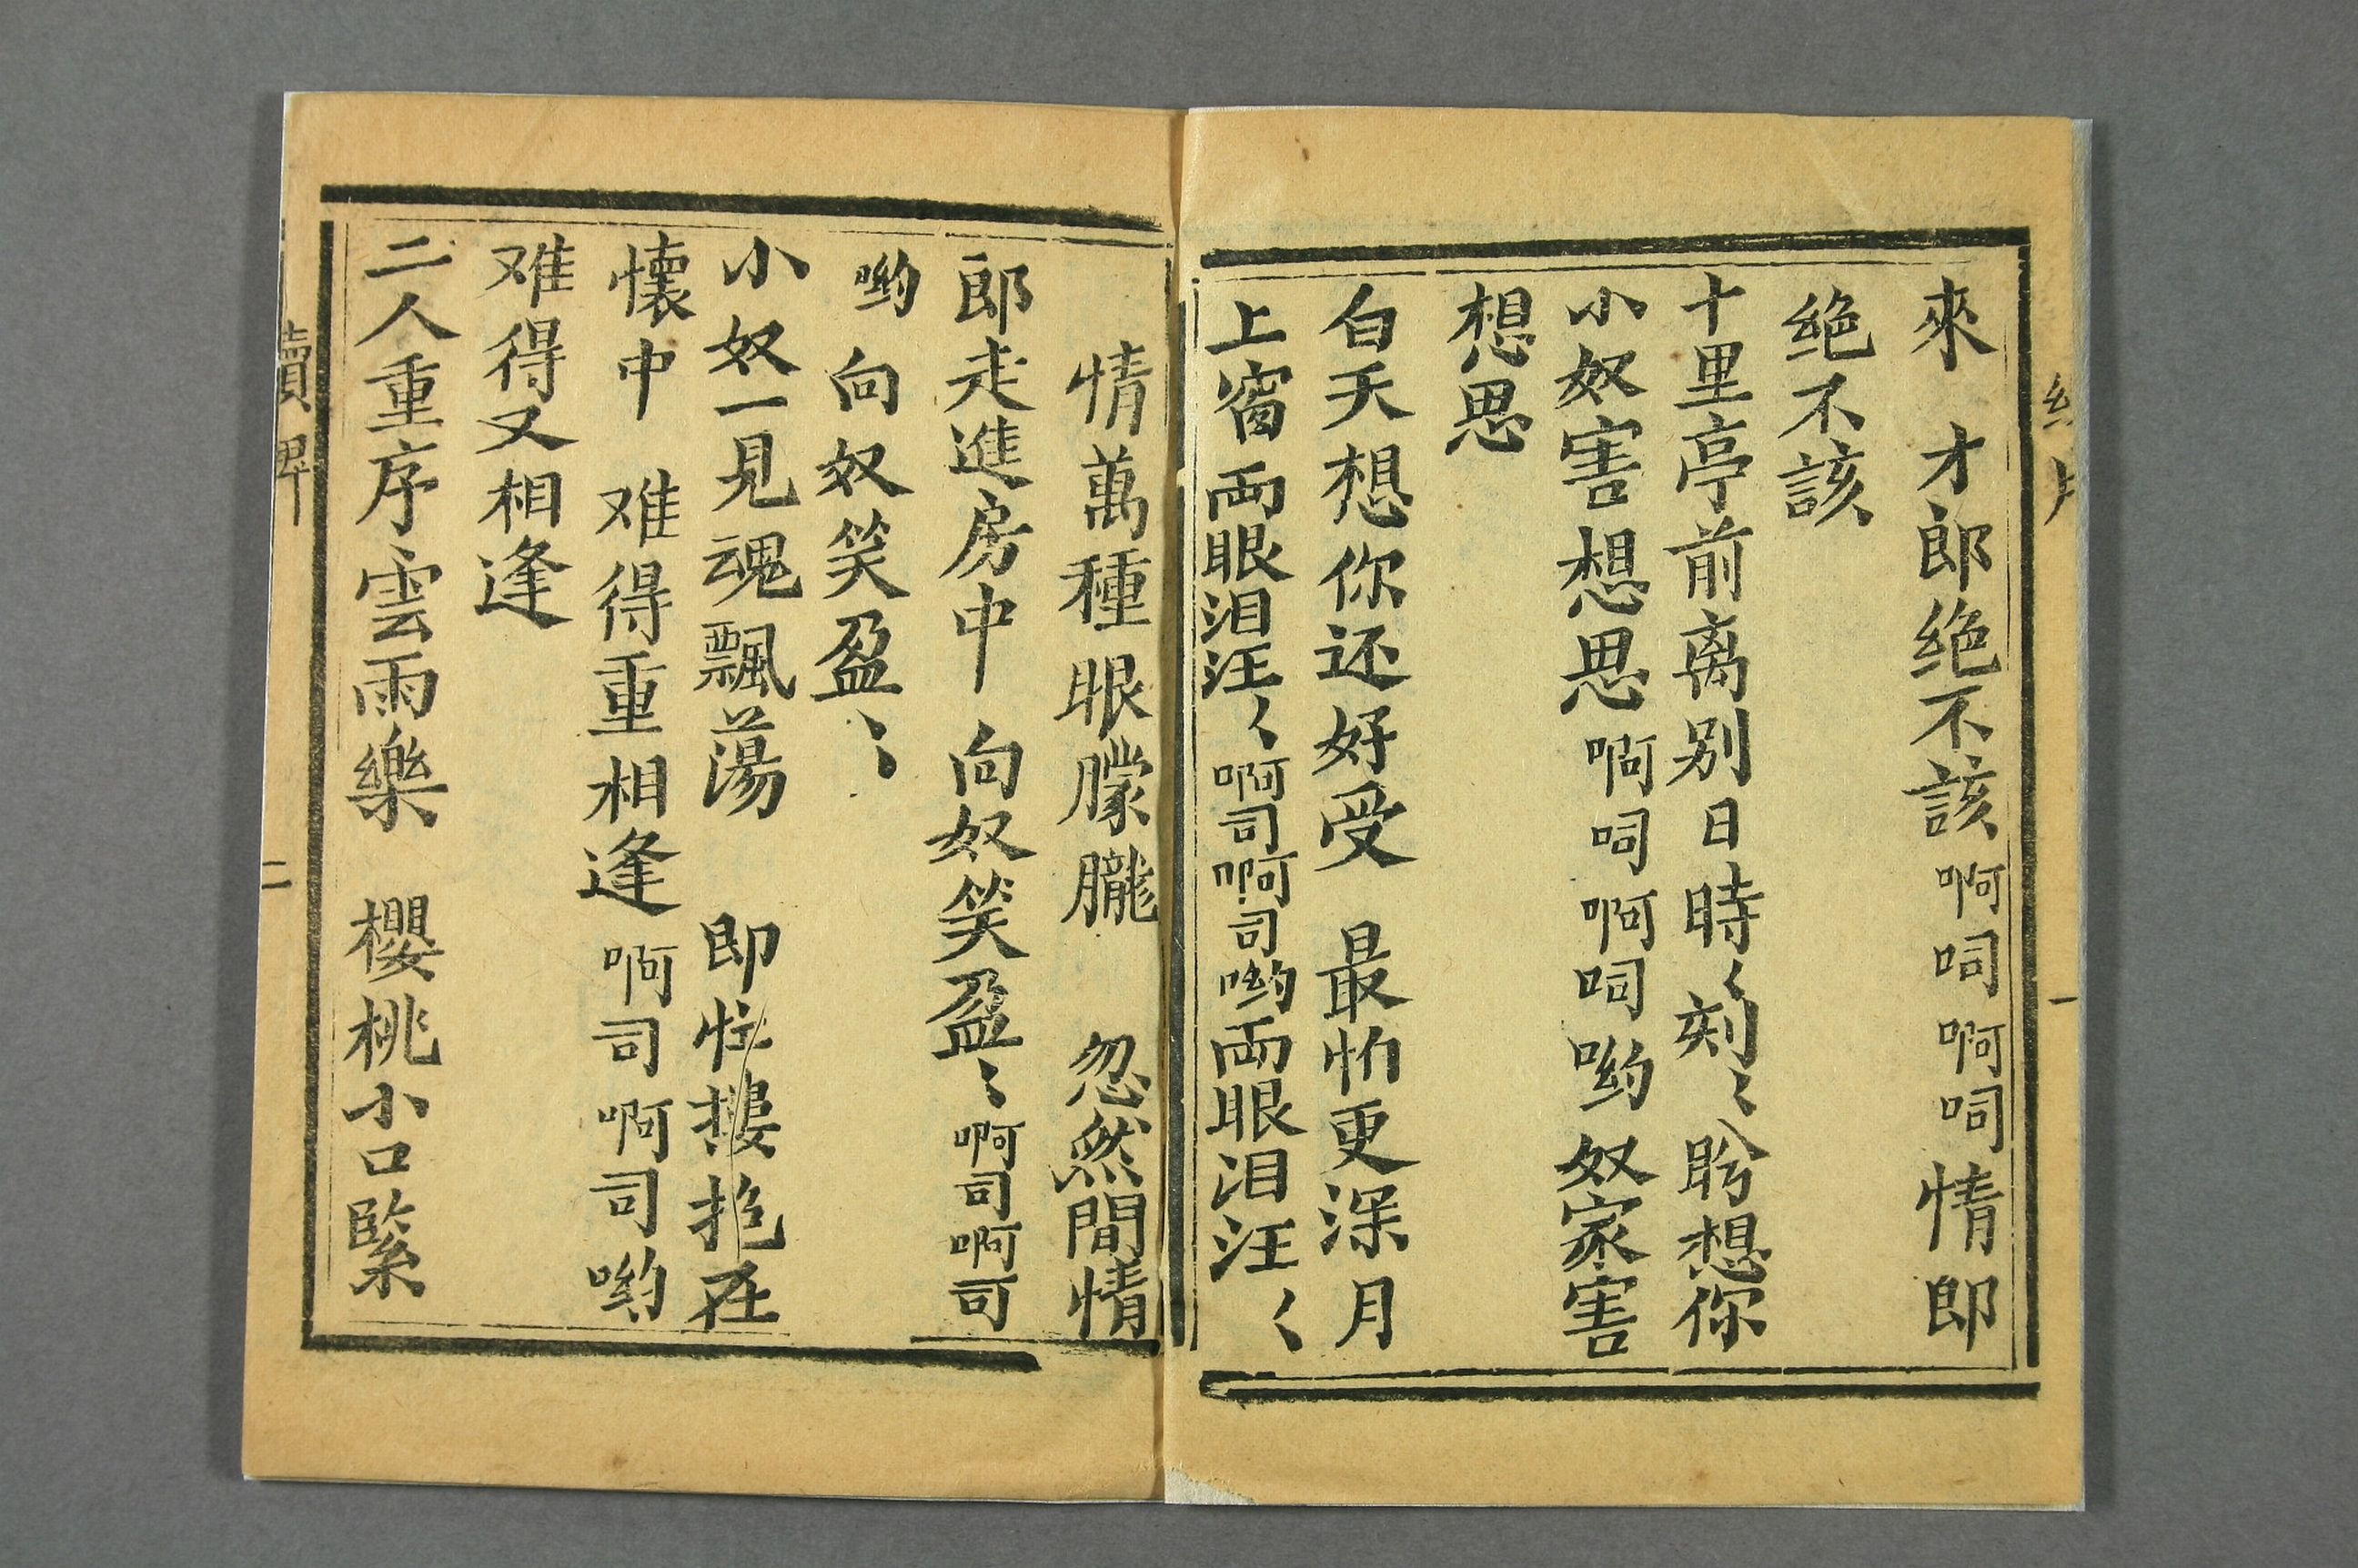 來 才郎绝不該啊呵啊呵情郎
绝不該
十里亭前离别日時〻刻〻盼想你
小奴害想思啊呵啊呵哟奴家害
想思
白天想你还好受 最怕更深月
上窗両眼泪汪〻啊司啊司哟両眼泪汪〻
情萬種眼朦朧 忽然間情
郎走進房中 向奴笑盈〻啊司啊司
哟向奴笑盈〻
小奴一見魂飄蕩 即忙摟抱在
懷中 难得重相逢啊司啊司哟
难得又相逢
二人重序雲雨樂 櫻桃小口緊
一
二